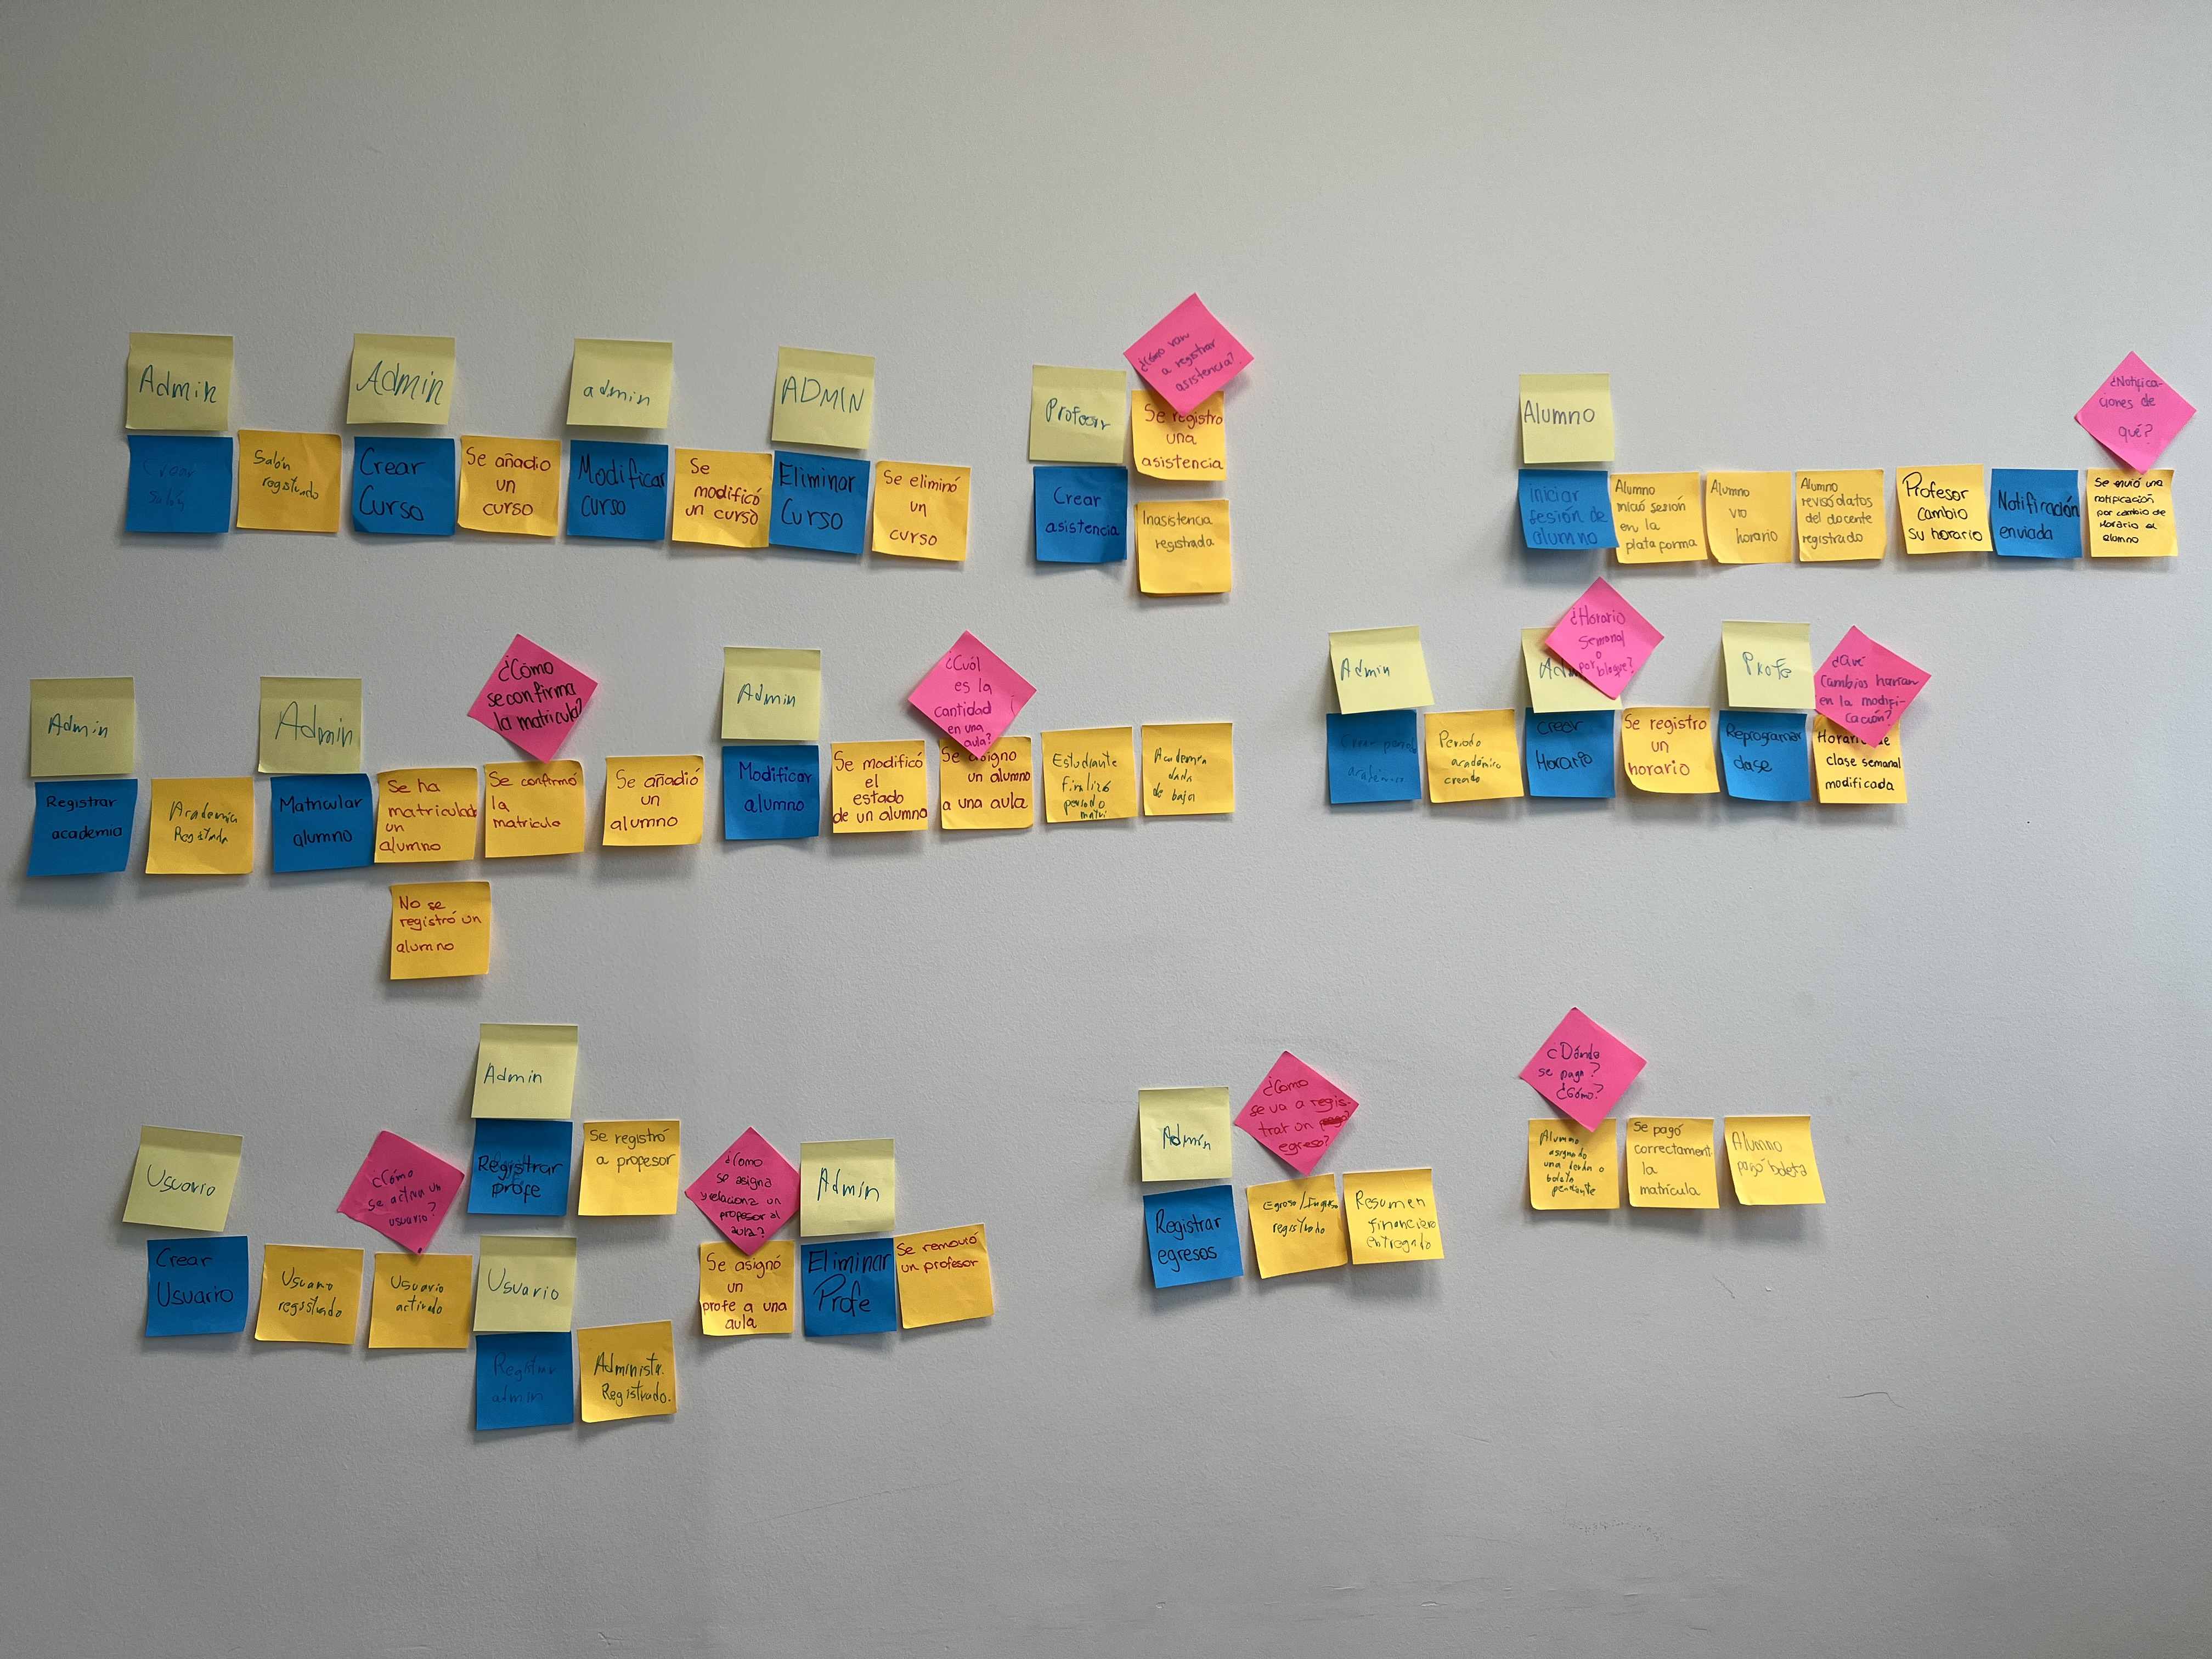 Admin
Crear
salón
Salón
registrado
Admin
Crear
Curso
Se añadio
un
curso
admin
Modificar
curso
Se
modificó
un curso
ADMIN
Eliminar
Curso
Se eliminó
un
curso
Profesor
Crear
asistencia
¿Cómo van
a registrar
asistencia?
Se registro
una
asistencia
Inasistencia
registrada
Alumno
iniciar
sesión de
alumno
Alumno
inició sesión
en la
plataforma
Alumno
vio
horario
Alumno
revisó datos
del docente
registrado
Profesor
cambio
su horario
Notificación
enviada
¿Notifica-
ciones de
qué?
Se envió una
notificación
por cambio de
Horario al
alumno
Admin
Registrar
academia
Academia
Registrada
Admin
Matricular
alumno
Se ha
matriculado
un
alumno
No se
registró un
alumno
¿Cómo
se confirma
la matricula?
Se confirmó
la
matricula
Se añadió
un
alumno
Admin
Modificar
alumno
Se modificó
el
estado
de un alumno
¿Cuál
es la
cantidad
en una
aula?
Se asigno
un alumno
a una aula
Estudiante
Finalizó
periodo
matri
Academia
dada
de baja
Admin
Crear
académico
Periodo
académico
creado
Crear
Horario
¿Horario
semanal
o
por bloque?
Se registro
un
horario
Profe
Reprogramar
clase
¿Qué
cambios harían
en la modifi-
cación?
Horario de
clase semanal
modificada
Usuario
Crear
Usuario
Usuario
registrado
¿Cómo
se activa un
usuario?
Usuario
activado
Admin
Registrar
profe
Se registró
a profesor
Usuario
Registrar
admin
Administr.
Registrado.
¿Como
se asigna
y relaciona un
profesor al
aula?
Se asignó
un
profe a una
aula
Admin
Eliminar
Profe
Se removió
un profesor
Admin
Registrar
egresos
¿Como
se va a regis-
trar un
egreso?
Egreso/Ingreso
registrado
Resumen
financiero
entregado
¿Dónde
se paga?
¿Cómo?
Alumno
asignado
una deuda o
boleta
pendiente
Se pagó
correctament
la
matrícula
Alumno
pagó boleta